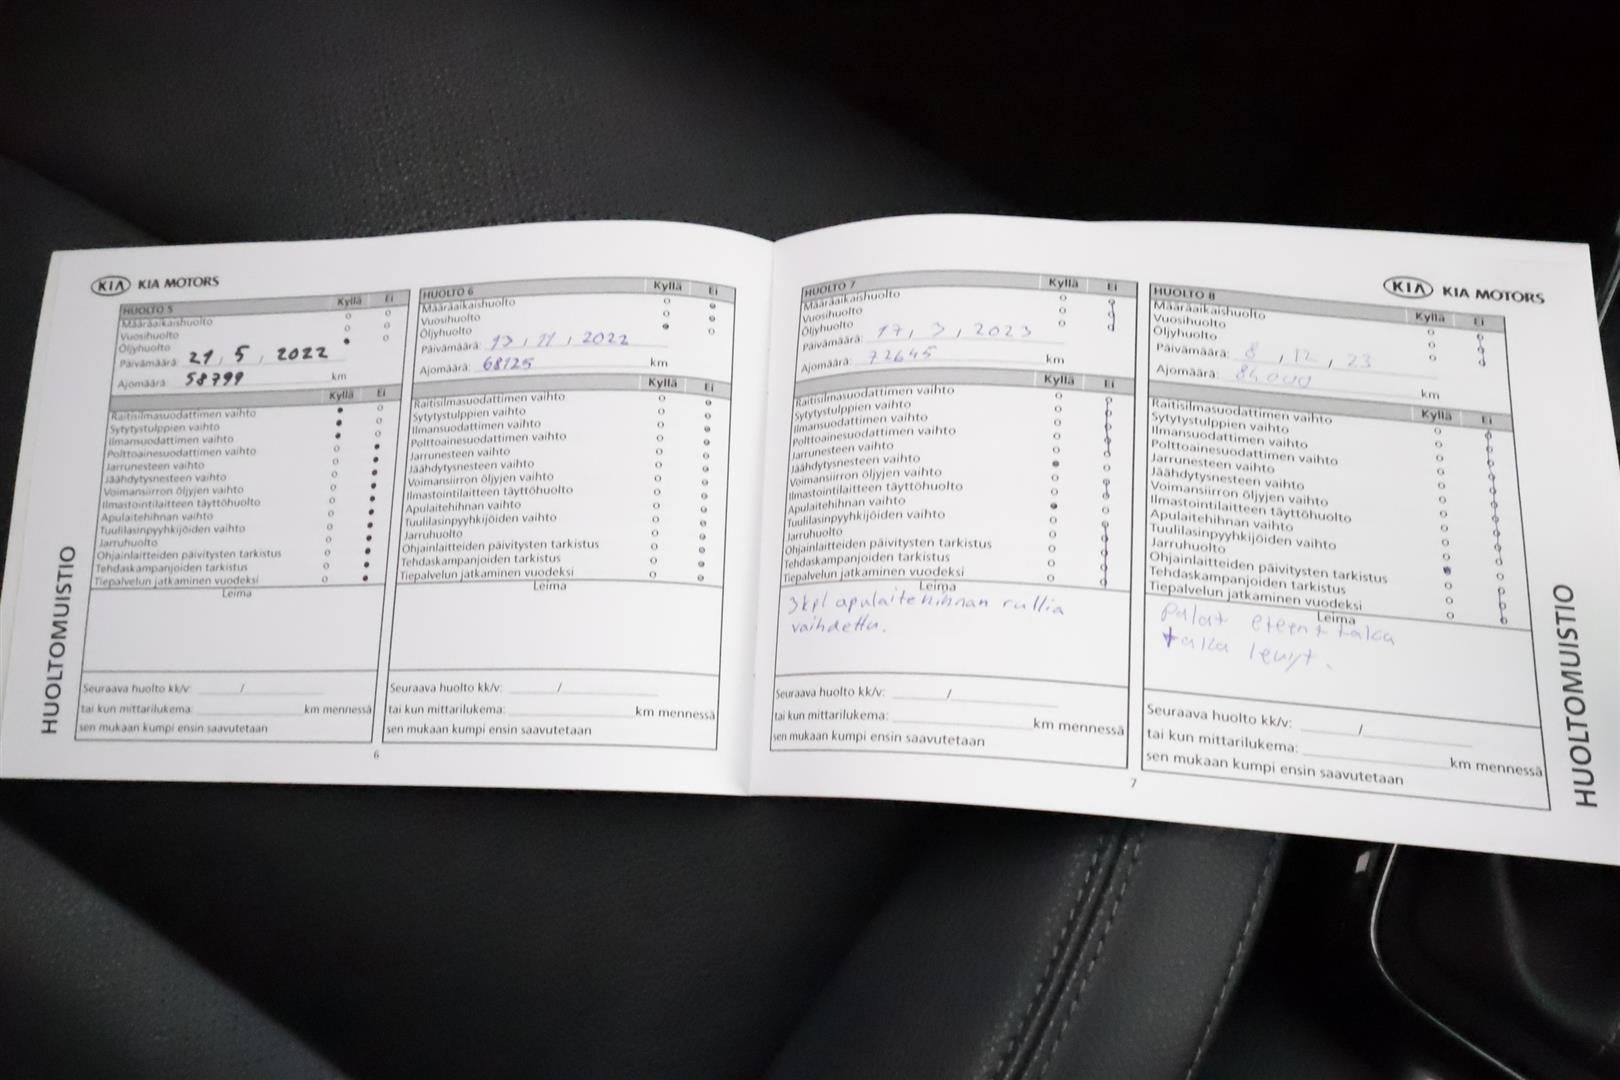 KIA KIA MOTORS
HUOLTOMUISTIO
HUOLTO 5 Kyllä Ei
Määräaikaishuolto
Vuosihuolto
Öljyhuolto
Päivämäärä: 21, 5, 2022
Ajomäärä: 58799 km
Kyllä Ei
Raitisilmasuodattimen vaihto
Sytytystulppien vaihto
Ilmansuodattimen vaihto
Polttoainesuodattimen vaihto
Jarrunesteen vaihto
Jäähdytysnesteen vaihto
Voimansiirron öljyjen vaihto
Ilmastointilaitteen täyttöhuolto
Apulaitehihnan vaihto
Tuulilasinpyyhkijöiden vaihto
Jarruhuolto
Ohjainlaitteiden päivitysten tarkistus
Tehdaskampanjoiden tarkistus
Tiepalvelun jatkaminen vuodeksi
Leima
Seuraava huolto kk/v: /
tai kun mittarilukema: km mennessä
sen mukaan kumpi ensin saavutetaan
HUOLTO 6 Kyllä Ei
Määräaikaishuolto
Vuosihuolto
Öljyhuolto
Päivämäärä: 13, 11, 2022
Ajomäärä: 68125 km
Kyllä Ei
Raitisilmasuodattimen vaihto
Sytytystulppien vaihto
Ilmansuodattimen vaihto
Polttoainesuodattimen vaihto
Jarrunesteen vaihto
Jäähdytysnesteen vaihto
Voimansiirron öljyjen vaihto
Ilmastointilaitteen täyttöhuolto
Apulaitehihnan vaihto
Tuulilasinpyyhkijöiden vaihto
Jarruhuolto
Ohjainlaitteiden päivitysten tarkistus
Tehdaskampanjoiden tarkistus
Tiepalvelun jatkaminen vuodeksi
Leima
Seuraava huolto kk/v: /
tai kun mittarilukema: km mennessä
sen mukaan kumpi ensin saavutetaan
6
HUOLTO 7 Kyllä Ei
Määräaikaishuolto
Vuosihuolto
Öljyhuolto
Päivämäärä: 17, 3, 2023
Ajomäärä: 72645 km
Kyllä Ei
Raitisilmasuodattimen vaihto
Sytytystulppien vaihto
Ilmansuodattimen vaihto
Polttoainesuodattimen vaihto
Jarrunesteen vaihto
Jäähdytysnesteen vaihto
Voimansiirron öljyjen vaihto
Ilmastointilaitteen täyttöhuolto
Apulaitehihnan vaihto
Tuulilasinpyyhkijöiden vaihto
Jarruhuolto
Ohjainlaitteiden päivitysten tarkistus
Tehdaskampanjoiden tarkistus
Tiepalvelun jatkaminen vuodeksi
Leima
3kpl apulaitehihnan rullia
vaihdettu.
Seuraava huolto kk/v: /
tai kun mittarilukema: km mennessä
sen mukaan kumpi ensin saavutetaan
KIA KIA MOTORS
HUOLTO 8 Kyllä Ei
Määräaikaishuolto
Vuosihuolto
Öljyhuolto
Päivämäärä: 8, 12, 23
Ajomäärä: 84000 km
Kyllä Ei
Raitisilmasuodattimen vaihto
Sytytystulppien vaihto
Ilmansuodattimen vaihto
Polttoainesuodattimen vaihto
Jarrunesteen vaihto
Jäähdytysnesteen vaihto
Voimansiirron öljyjen vaihto
Ilmastointilaitteen täyttöhuolto
Apulaitehihnan vaihto
Tuulilasinpyyhkijöiden vaihto
Jarruhuolto
Ohjainlaitteiden päivitysten tarkistus
Tehdaskampanjoiden tarkistus
Tiepalvelun jatkaminen vuodeksi
Leima
Palat eteen + taka
taka levyt.
Seuraava huolto kk/v: /
tai kun mittarilukema: km mennessä
sen mukaan kumpi ensin saavutetaan
7
HUOLTOMUISTIO